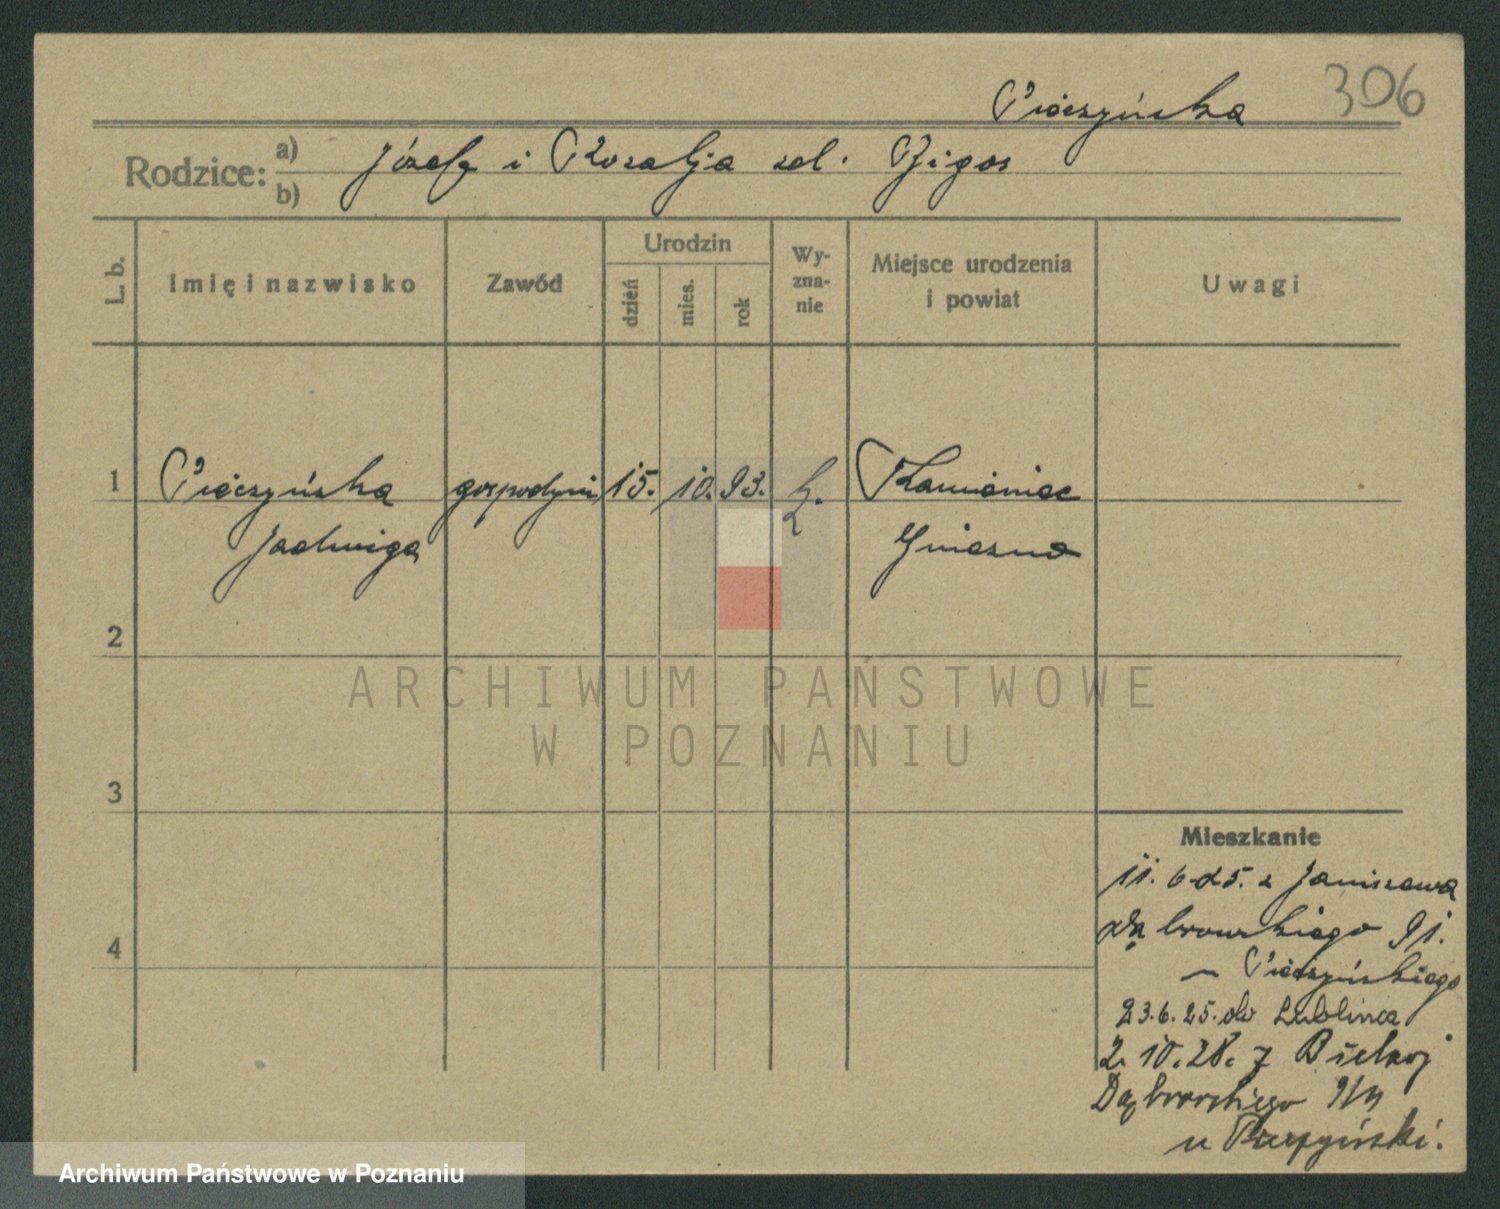 306
Pieczyńska
Rodzice: a) Józef i Rozalja zd. Bigos
b)
L. b.
Imię i nazwisko
Zawód
Urodzin
dzień
mies.
rok
Wy-
zna-
nie
Miejsce urodzenia
i powiat
Uwagi
1 Pieczyńska gospodyni 15. 10. 93. k. Kamieniec
Jadwiga Gniezno
2
3
4
Mieszkanie
11.6.25. z Janiszewa
Dąbrowskiego 91.
u Pieczyńskiego
23.6.25. do Lublina
2.10.28. z
Dąbrowskiego
u
ARCHIWUM PAŃSTWOWE
W POZNANIU
Archiwum Państwowe w Poznaniu